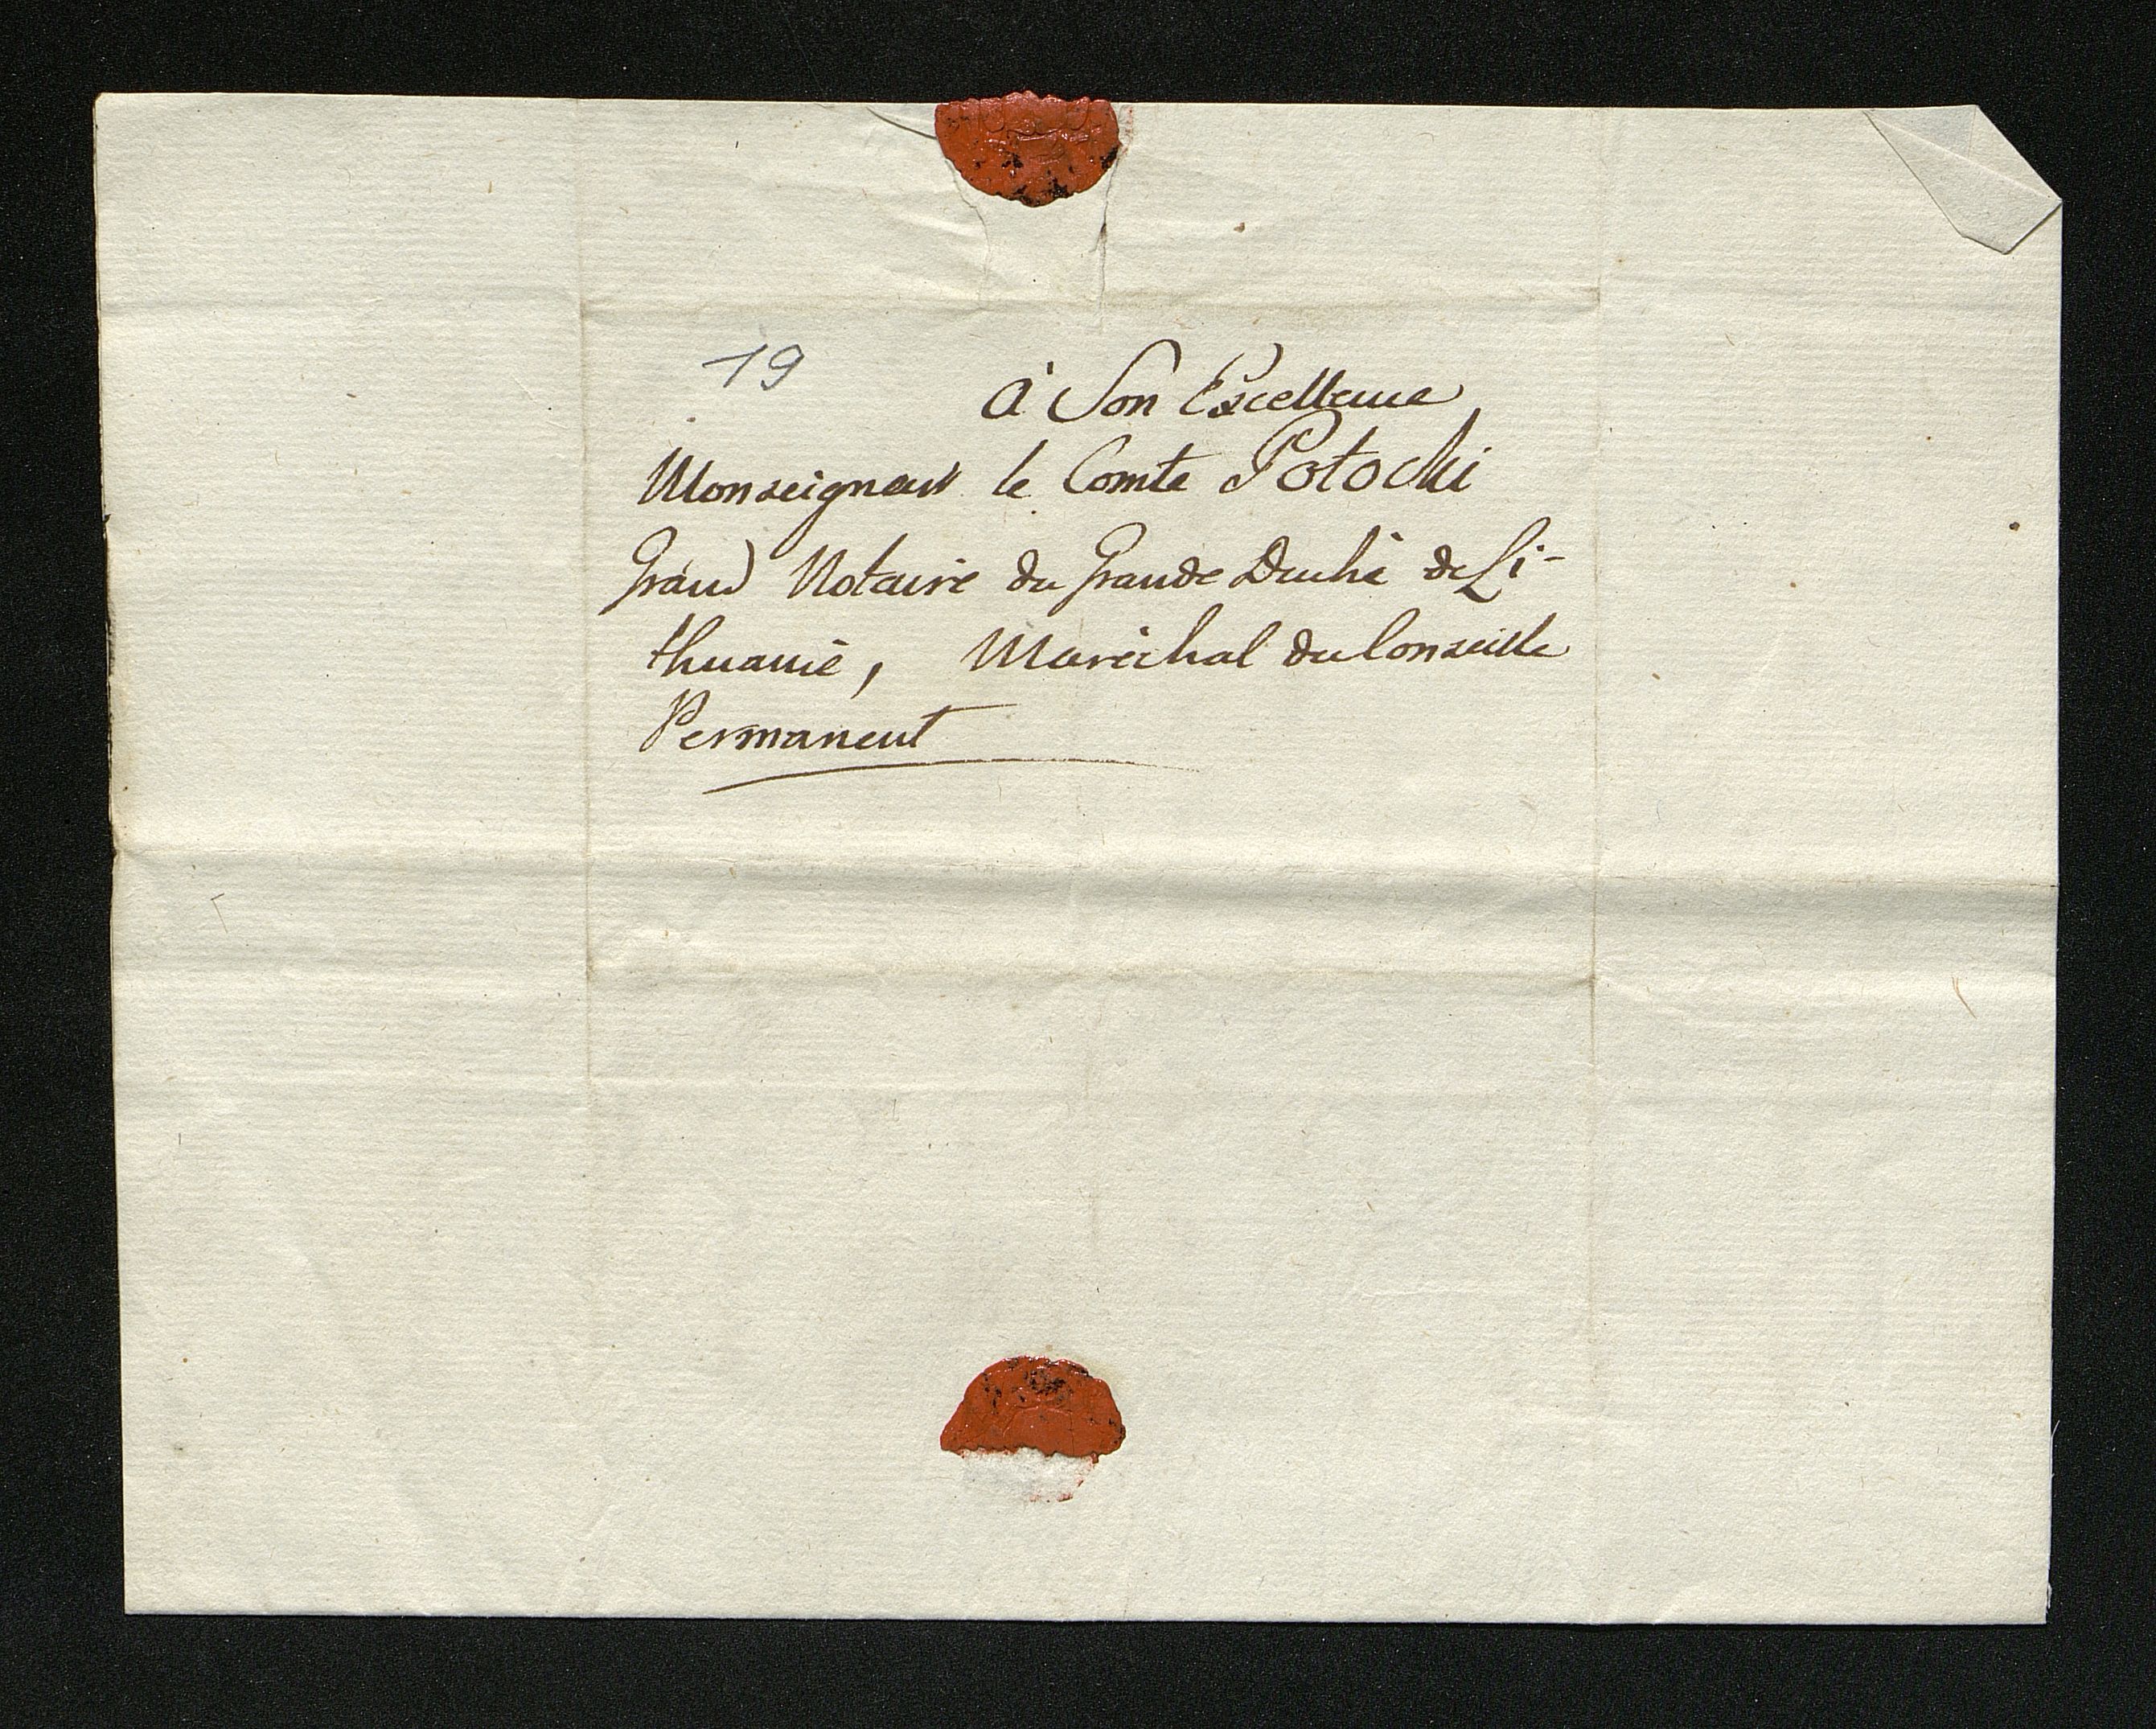 19
à Son Excellence
Monseigneur le Comte Potocki
Grand Notaire du Grande Duché de Li-
thuanie, Maréchal du Conseille
Permanent